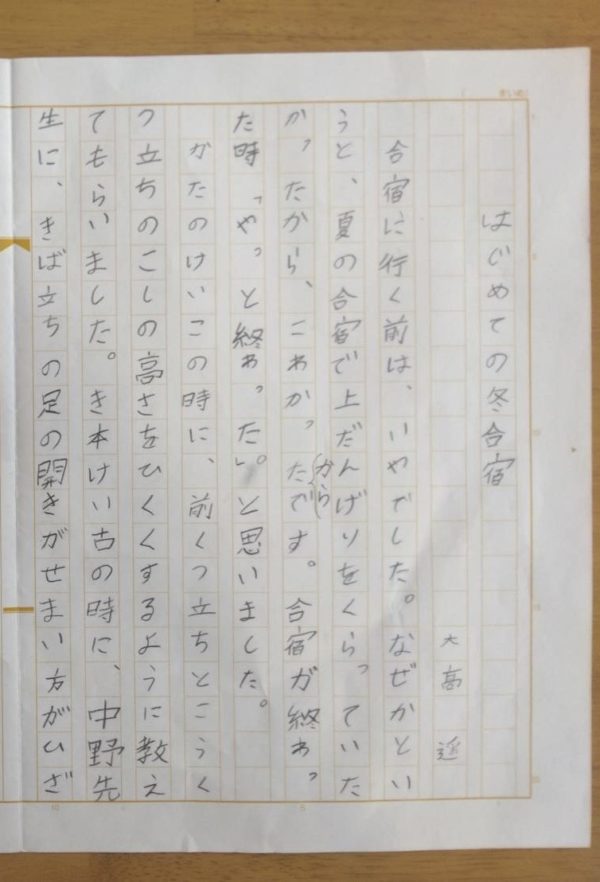 はじめての冬合宿
大高
合宿に行く前は、いやでした。なぜかとい
うと、夏の合宿で上だんげりをくらっていた
かったから、こわかったからです。合宿が終わっ
た時「やっと終わった。」と思いました。
かたのけいこの時に、前くつ立ちとこうく
つ立ちのこしの高さをひくくするように教え
てもらいました。き本けい古の時に、中野先
生に、きば立ちの足の開きがせまい方がひざ
5
10